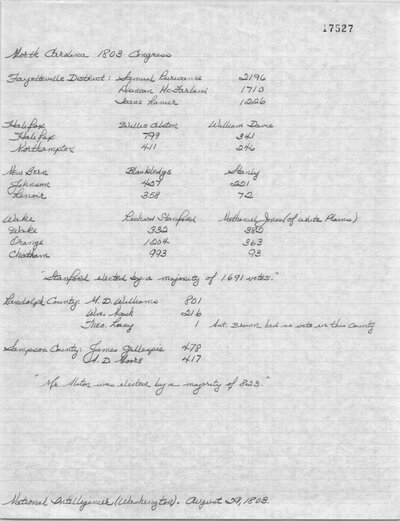 17527
North Carolina 1803 Congress
Fayetteville District: Samuel Purviance 2196
Duncan McFarland 1710
Isaac Lanier 1226
Halifax Willis Alston William Davie
Halifax 799 341
Northampton 411 246
New Bern Blackledge Stanly
Johnson 427 221
Lenoir 358 72
Wake Richard Stanford Nathaniel Jones (of White Plains)
Wake 332 382
Orange 1204 363
Chatham 993 93
"Stanford elected by a majority of 1691 votes."
Randolph County: M. D. Williams 801
Wm. Nash 216
Theo. Lacy 1 Bat. Brown had no vote in this County
Sampson County: James Gillespie 478
A. D. Moore 417
"Mr. Alston was elected by a majority of 823."
National Intelligencer (Washington). August 29, 1803.